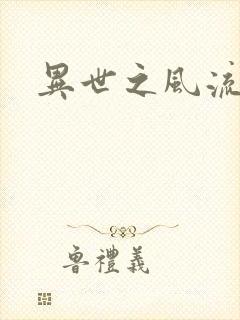 異世之風流
魯禮義